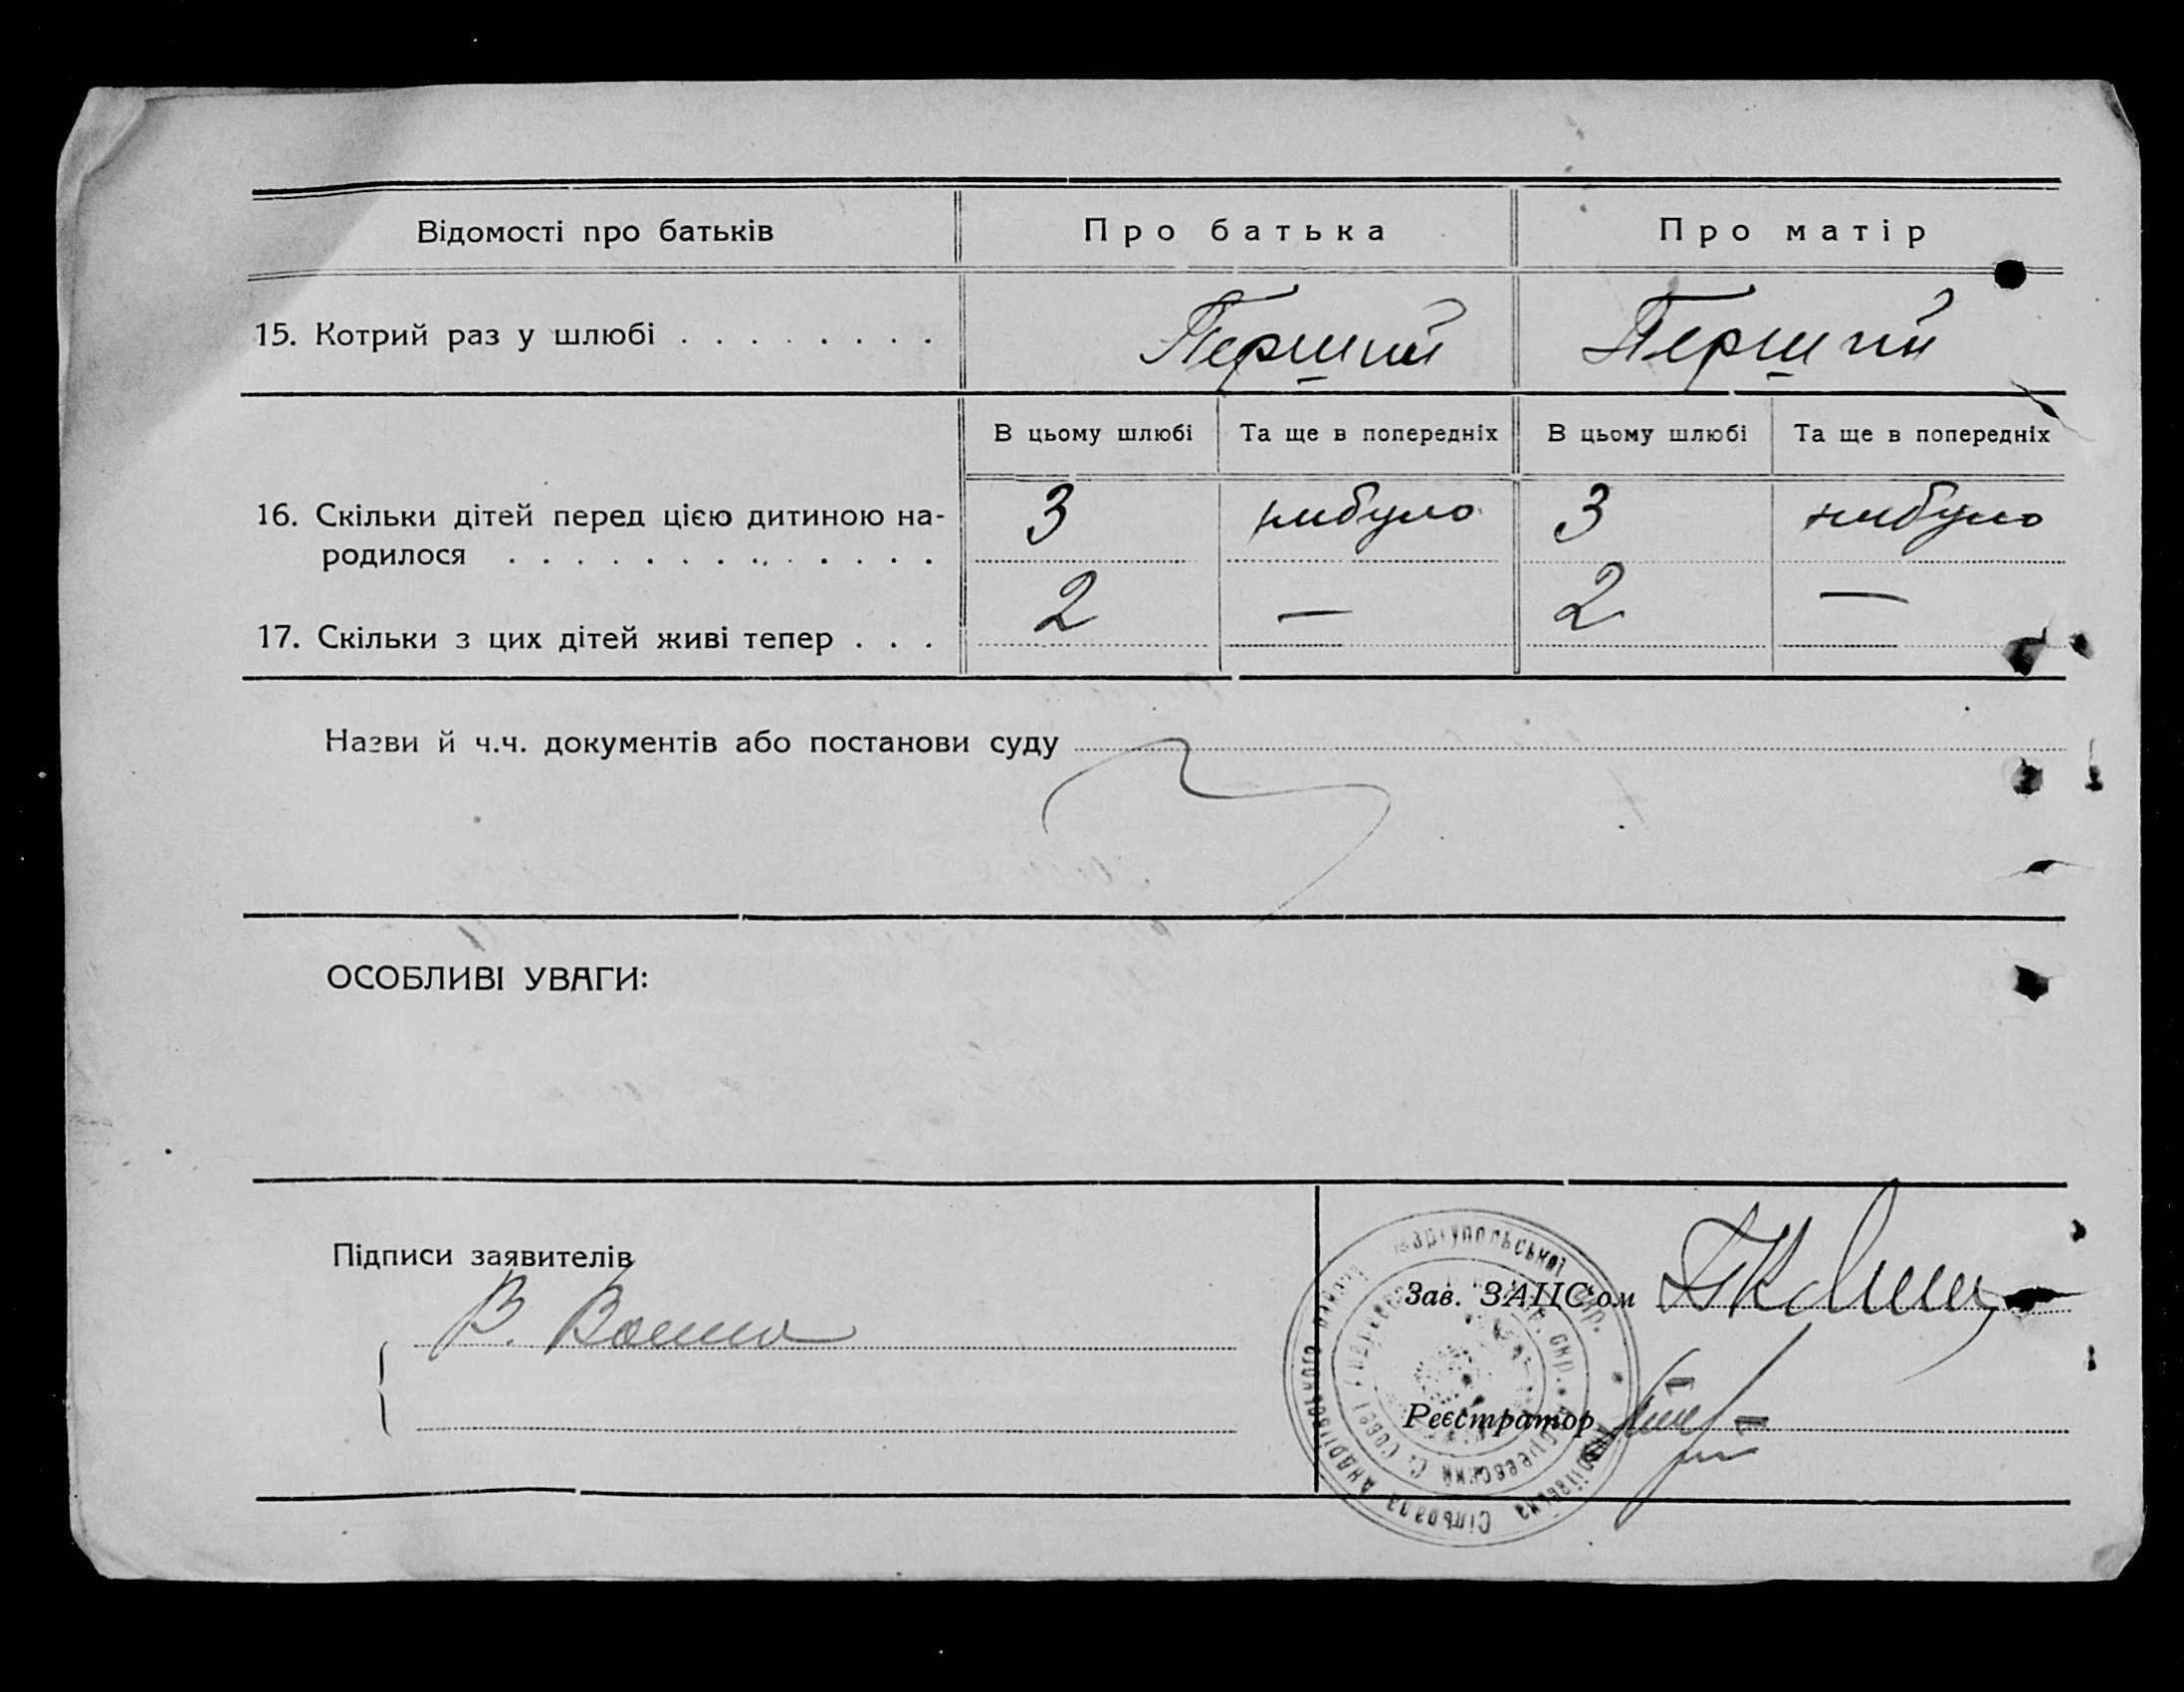 Відомості про батьків Про батька Про матір
15. Котрий раз у шлюбі . . . . . . . . Перший Перший
В цьому шлюбі Та ще в попередніх В цьому шлюбі Та ще в попередніх
16. Скільки дітей перед цією дитиною на- 3 небуло 3 небуло
родилося . . . . . . . . . . . . .
17. Скільки з цих дітей живі тепер . . . 2 — 2 —
Назви й ч.ч. документів або постанови суду
ОСОБЛИВІ УВАГИ:
Підписи заявителів
В.
Зав. ЗАЦС'ом
Реєстратор
Маріупольської окр.
Андріївська Сільрада Андріївського